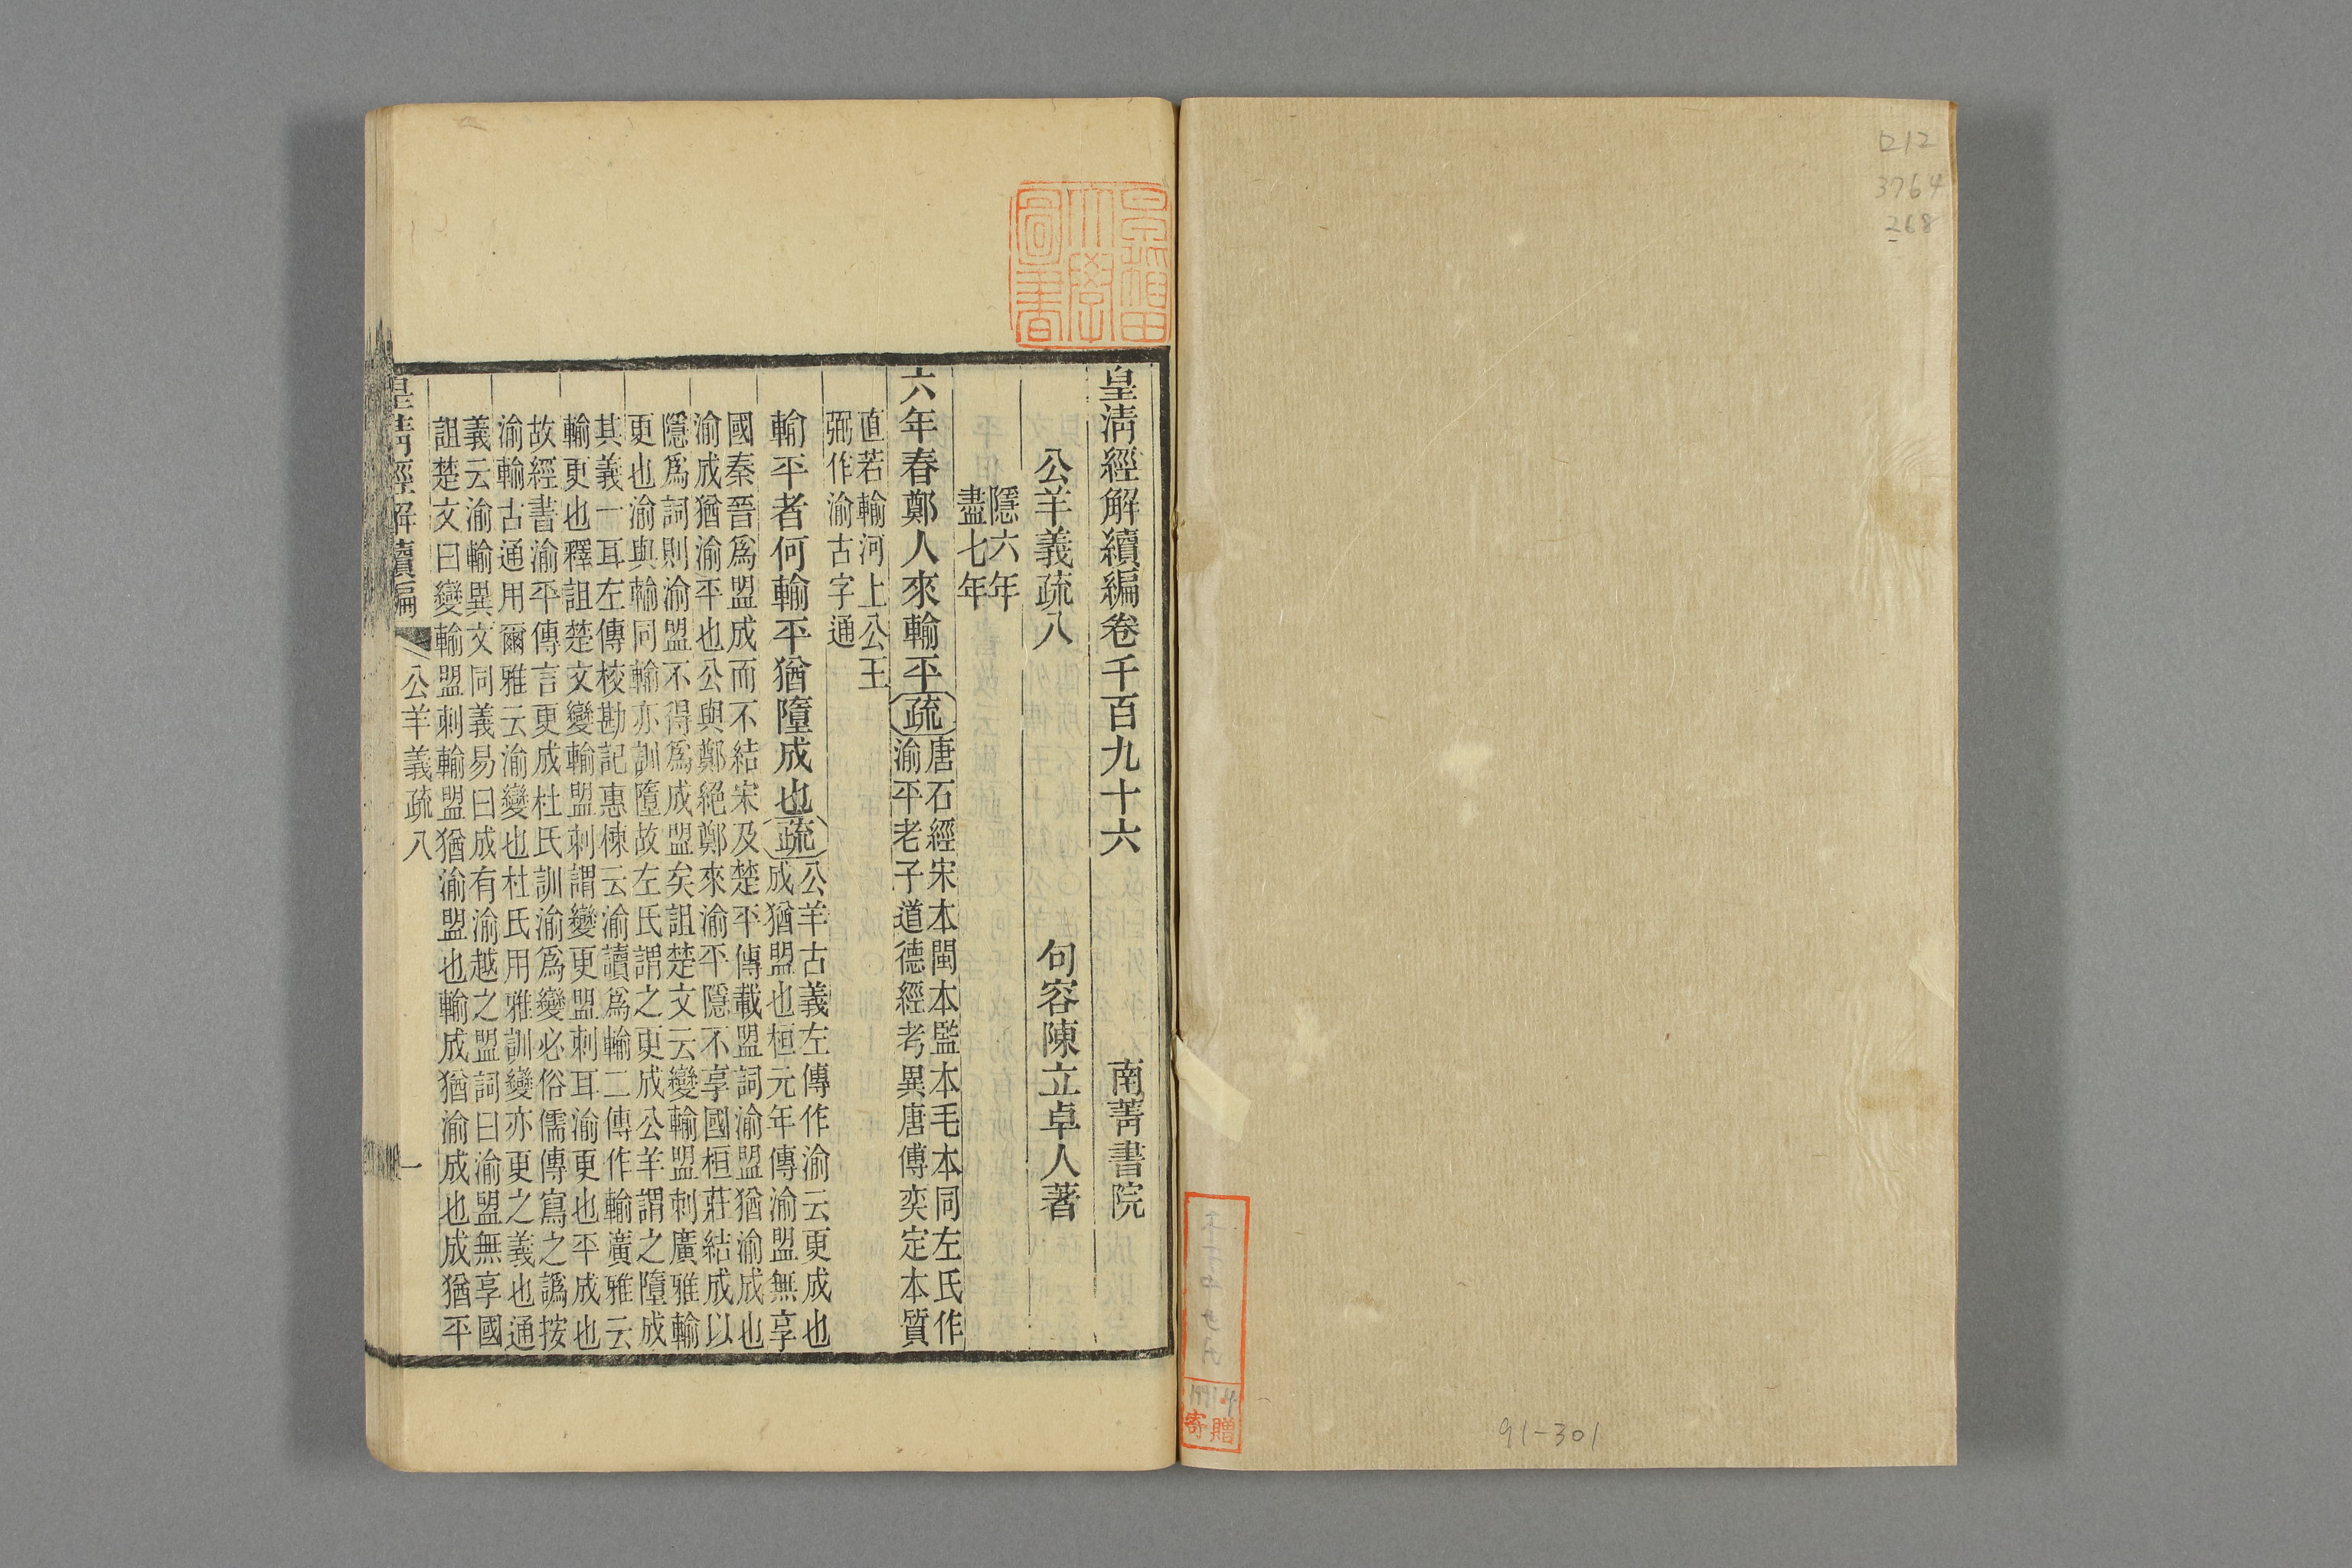 皇清經解續編卷千百九十六
南菁書院
公羊義疏八
句容陳立卓人著
隱六年
盡七年
六年春鄭人來輸平
疏
唐石經宋本閩本監本毛本同左氏作
渝平老子道德經考異唐傅奕定本質
直若輸河上公王
弼作渝古字通
輸平者何輸平猶墮成也
疏
公羊古義左傳作渝云更成也
成猶盟也桓元年傳渝盟無享
國秦晉爲盟成而不結宋及楚平傳載盟詞渝盟猶渝成也
渝成猶渝平也公與鄭絕鄭來渝平隱不享國桓莊結成以
隱爲詞則渝盟不得爲成盟矣詛楚文云變輸盟刺廣雅輸
更也渝與輸同輸亦訓墮故左氏謂之更成公羊謂之墮成
其義一耳左傳校勘記惠棟云渝讀爲輸二傳作輸廣雅云
輸更也釋詛楚文變輸盟刺謂變更盟刺耳渝更也平成也
故經書渝平傳言更成杜氏訓渝爲變必俗儒傳寫之譌按
渝輸古通用爾雅云渝變也杜氏用雅訓變亦更之義也通
義云渝輸異文同義易曰成有渝越之盟詞曰渝盟無享國
詛楚文曰變輸盟刺輸盟猶渝盟也輸成猶渝成也成猶平
皇清經解續編
公羊義疏八
一
早稻田
大學
圖書
寄贈
212
3764
268
91-301